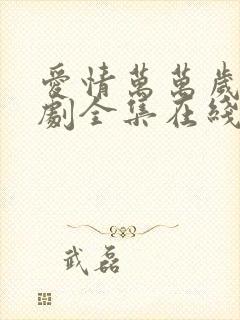 愛情萬萬歲
劇全集在綫
武磊